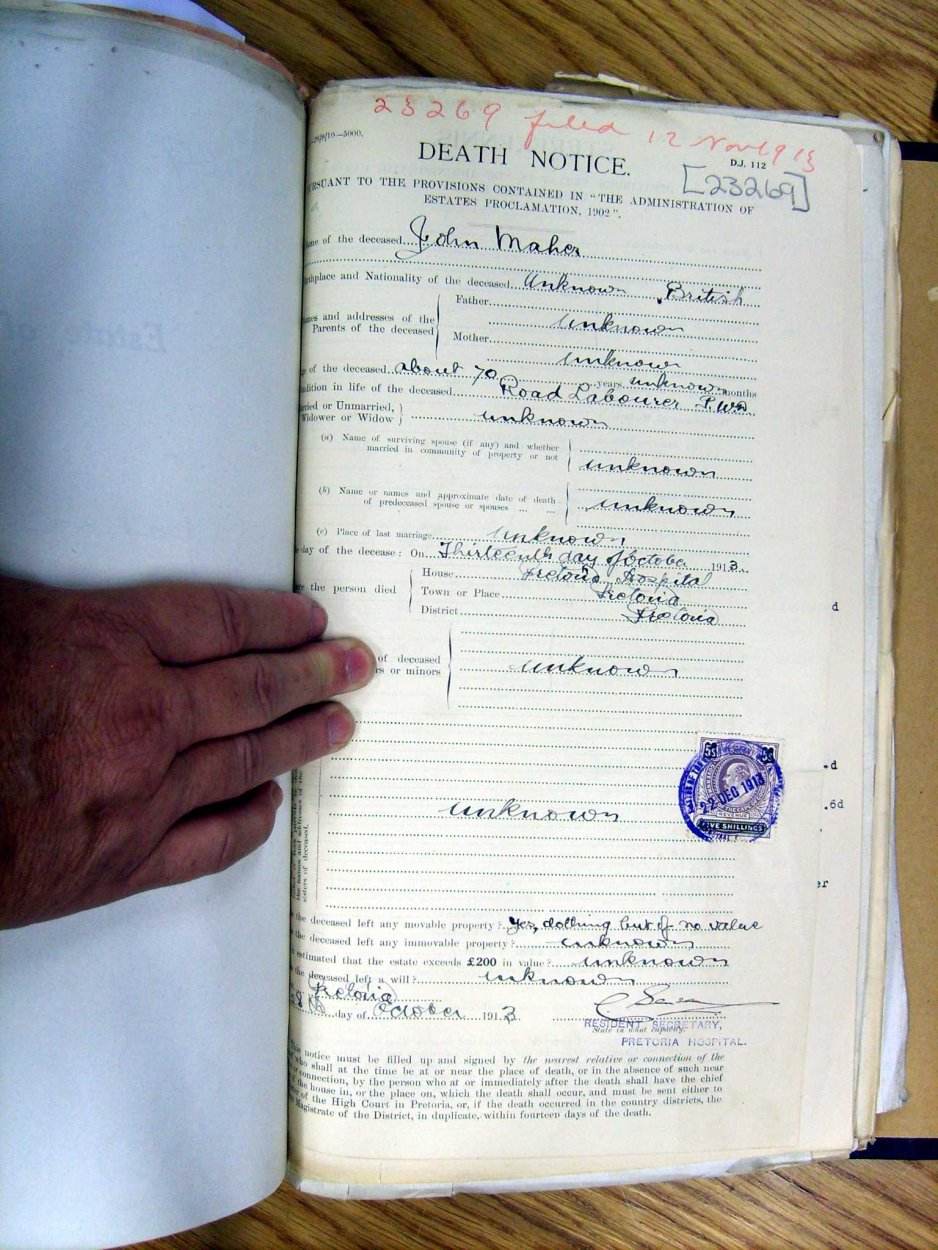 23269 filed 12 Nov 1913
/10—5000.
DEATH NOTICE.
D.J. 112
[23269]
PURSUANT TO THE PROVISIONS CONTAINED IN "THE ADMINISTRATION OF
ESTATES PROCLAMATION, 1902".
of the deceased John Maher
Birthplace and Nationality of the deceased unknown British
Father
unknown
and addresses of the
Parents of the deceased
Mother
unknown
of the deceased about 70 years unknown months
in life of the deceased Road Labourer P.W.D.
Married or Unmarried,
Widower or Widow
unknown
(a) Name of surviving spouse (if any) and whether
married in community of property or not
unknown
(b) Name or names and approximate date of death
of predeceased spouse or spouses ... ...
unknown
(c) Place of last marriage unknown
day of the decease: On Thirteenth day of October 1913.
House Pretoria Hospital
the person died
Town or Place Pretoria
District Pretoria
of deceased
or minors
unknown
22 DEC 1913
REVENUE
FIVE SHILLINGS
unknown
sisters of deceased.
the deceased left any movable property? Yes, clothing but of no value
the deceased left any immovable property? unknown
estimated that the estate exceeds £200 in value? unknown
the deceased left a will? unknown
Pretoria
day of October 1913
RESIDENT SECRETARY,
State in what capacity.
PRETORIA HOSPITAL.
This notice must be filled up and signed by the nearest relative or connection of the
who shall at the time be at or near the place of death, or in the absence of such near
or connection, by the person who at or immediately after the death shall have the chief
the house in, or the place on, which the death shall occur, and must be sent either to
of the High Court in Pretoria, or, if the death occurred in the country districts, the
Magistrate of the District, in duplicate, within fourteen days of the death.
d
-d
.6d
er